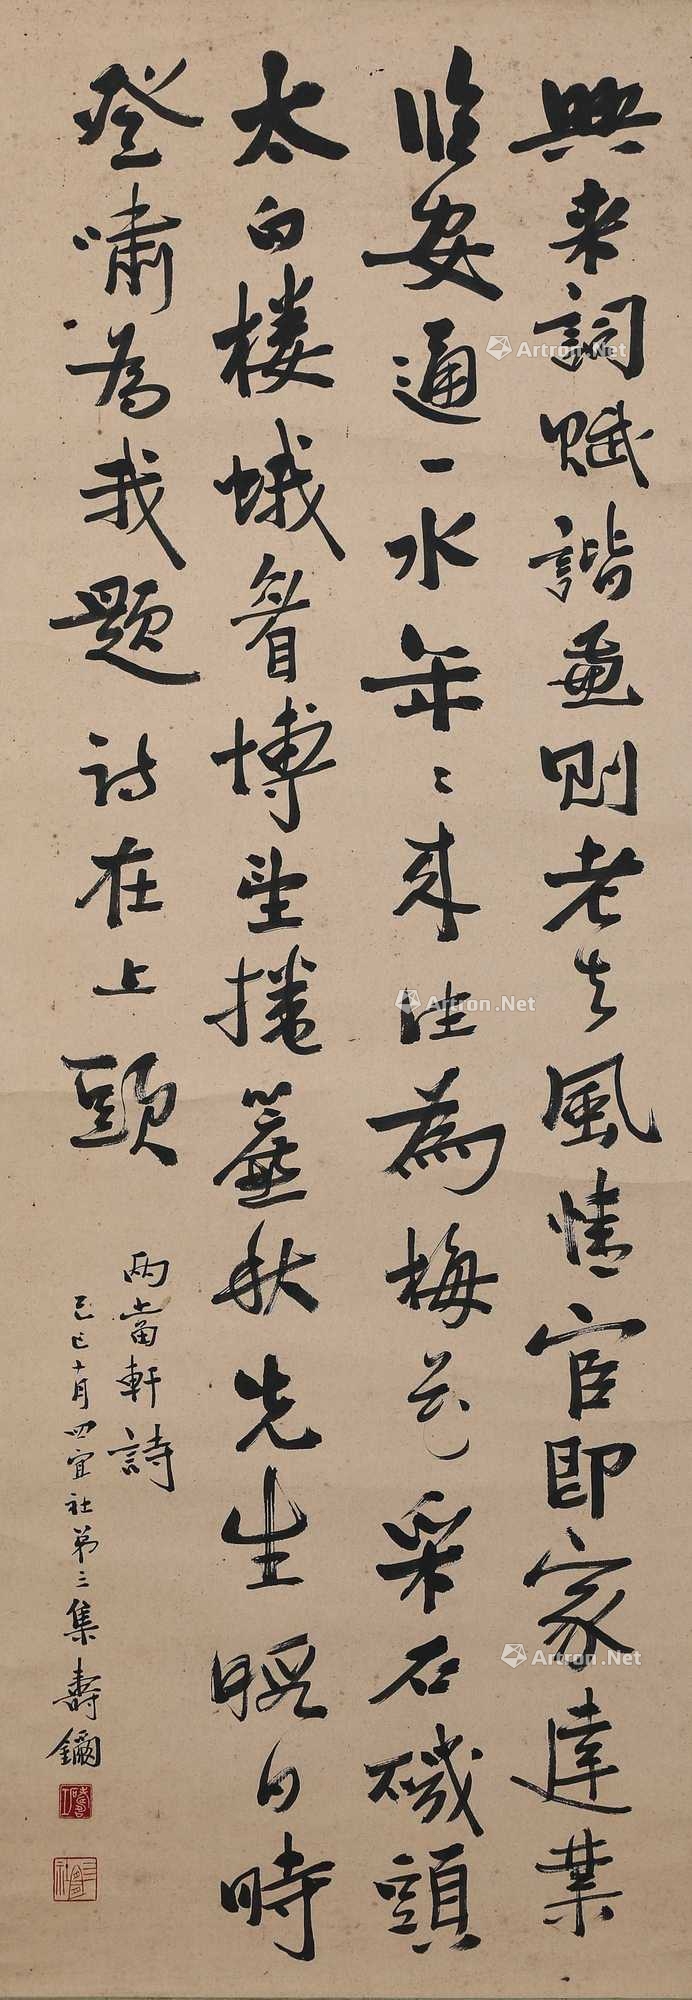 興来詞賦諧畫則老去風情宦即家達業
臨安通一水年〻来往為梅花采石磯頭
太白楼蛾眉博望捲簾秋先生暇日時
登嘯為我題詩在上頭
兩當軒詩
己巳十月四宜社第三集壽鑈
Artron.Net
Artron.Net
Artron.Net